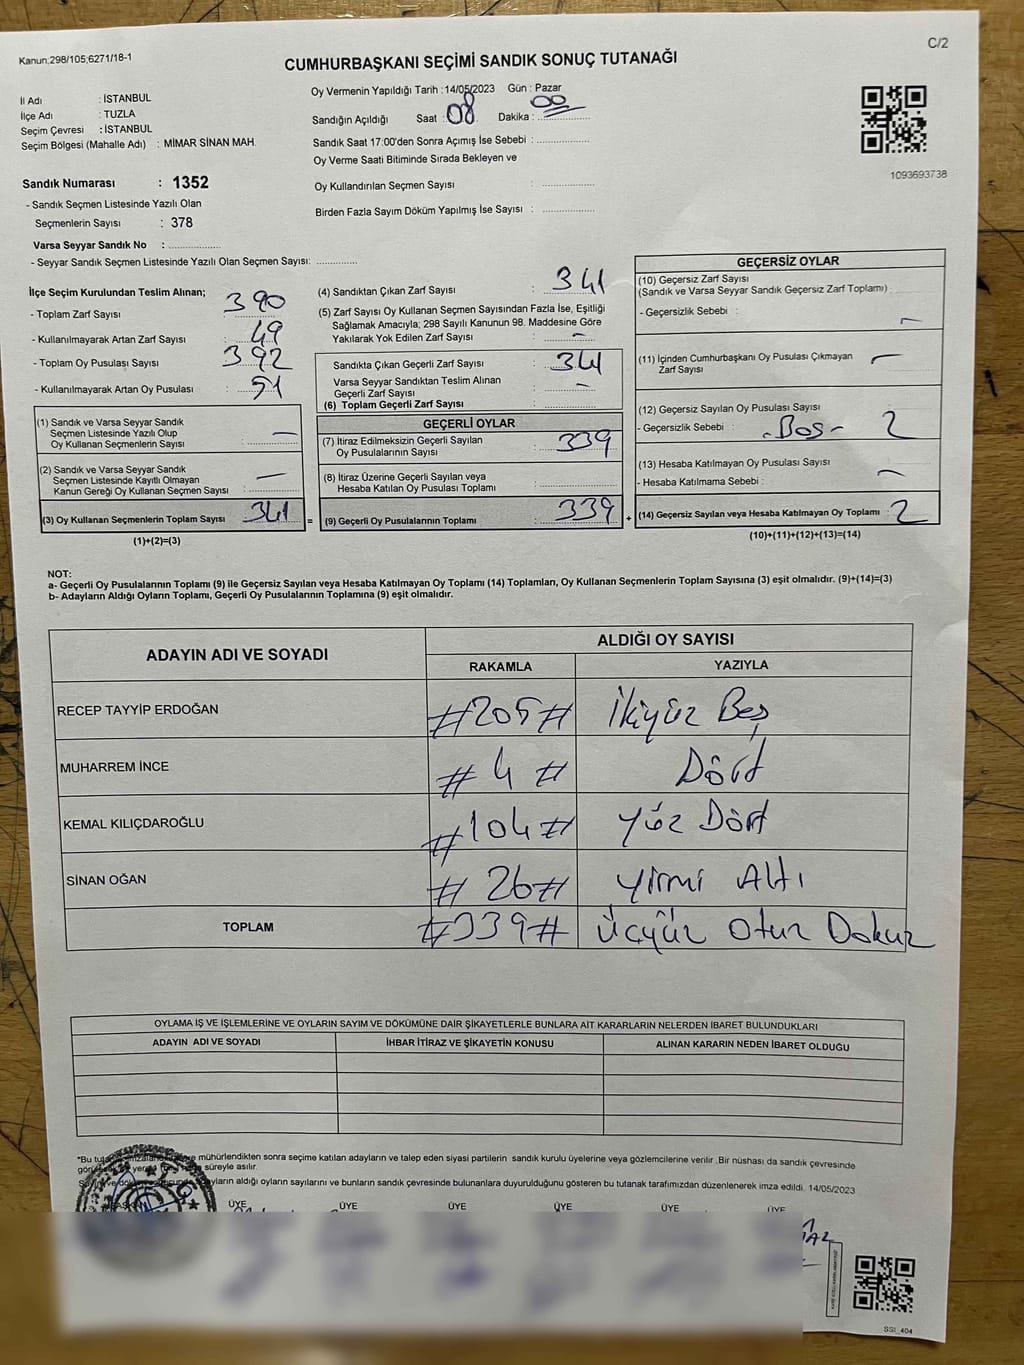 Kanun;298/105;6271/18-1
C/2
CUMHURBAŞKANI SEÇİMİ SANDIK SONUÇ TUTANAĞI
İl Adı : İSTANBUL
İlçe Adı : TUZLA
Seçim Çevresi : İSTANBUL
Seçim Bölgesi (Mahalle Adı) : MİMAR SİNAN MAH.
Sandık Numarası : 1352
- Sandık Seçmen Listesinde Yazılı Olan
Seçmenlerin Sayısı : 378
Varsa Seyyar Sandık No : ....................
- Seyyar Sandık Seçmen Listesinde Yazılı Olan Seçmen Sayısı: ...............
Oy Vermenin Yapıldığı Tarih : 14/05/2023 Gün : Pazar
Sandığın Açıldığı Saat : 08 Dakika : 00
Sandık Saat 17:00'den Sonra Açımış İse Sebebi : ...................
Oy Verme Saati Bitiminde Sırada Bekleyen ve
Oy Kullandırılan Seçmen Sayısı : ...................
Birden Fazla Sayım Döküm Yapılmış İse Sayısı : ...................
1093693738
İlçe Seçim Kurulundan Teslim Alınan;
- Toplam Zarf Sayısı : 390
- Kullanılmayarak Artan Zarf Sayısı : 49
- Toplam Oy Pusulası Sayısı : 392
- Kullanılmayarak Artan Oy Pusulası : 51
(1) Sandık ve Varsa Seyyar Sandık
Seçmen Listesinde Yazılı Olup
Oy Kullanan Seçmenlerin Sayısı : —
(2) Sandık ve Varsa Seyyar Sandık
Seçmen Listesinde Kayıtlı Olmayan
Kanun Gereği Oy Kullanan Seçmen Sayısı : —
(3) Oy Kullanan Seçmenlerin Toplam Sayısı : 341
(1)+(2)=(3)
=
(4) Sandıktan Çıkan Zarf Sayısı : 341
(5) Zarf Sayısı Oy Kullanan Seçmen Sayısından Fazla İse, Eşitliği
Sağlamak Amacıyla; 298 Sayılı Kanunun 98. Maddesine Göre
Yakılarak Yok Edilen Zarf Sayısı : —
Sandıkta Çıkan Geçerli Zarf Sayısı : 341
Varsa Seyyar Sandıktan Teslim Alınan
Geçerli Zarf Sayısı : —
(6) Toplam Geçerli Zarf Sayısı :
GEÇERLİ OYLAR
(7) İtiraz Edilmeksizin Geçerli Sayılan
Oy Pusulalarının Sayısı : 339
(8) İtiraz Üzerine Geçerli Sayılan veya
Hesaba Katılan Oy Pusulası Toplamı :
(9) Geçerli Oy Pusulalarının Toplamı : 339
+
GEÇERSİZ OYLAR
(10) Geçersiz Zarf Sayısı
(Sandık ve Varsa Seyyar Sandık Geçersiz Zarf Toplamı) :
- Geçersizlik Sebebi : —
(11) İçinden Cumhurbaşkanı Oy Pusulası Çıkmayan —
Zarf Sayısı
(12) Geçersiz Sayılan Oy Pusulası Sayısı
- Geçersizlik Sebebi : - Boş - 2
(13) Hesaba Katılmayan Oy Pusulası Sayısı
- Hesaba Katılmama Sebebi : —
(14) Geçersiz Sayılan veya Hesaba Katılmayan Oy Toplamı : 2
(10)+(11)+(12)+(13)=(14)
NOT:
a- Geçerli Oy Pusulalarının Toplamı (9) ile Geçersiz Sayılan veya Hesaba Katılmayan Oy Toplamı (14) Toplamları, Oy Kullanan Seçmenlerin Toplam Sayısına (3) eşit olmalıdır. (9)+(14)=(3)
b- Adayların Aldığı Oyların Toplamı, Geçerli Oy Pusulalarının Toplamına (9) eşit olmalıdır.
ADAYIN ADI VE SOYADI ALDIĞI OY SAYISI
RAKAMLA YAZIYLA
RECEP TAYYİP ERDOĞAN #205# İkiyüz Beş
MUHARREM İNCE #4# Dört
KEMAL KILIÇDAROĞLU #104# Yüz Dört
SİNAN OĞAN #26# Yirmi Altı
TOPLAM #339# Üçyüz Otuz Dokuz
OYLAMA İŞ VE İŞLEMLERİNE VE OYLARIN SAYIM VE DÖKÜMÜNE DAİR ŞİKAYETLERLE BUNLARA AİT KARARLARIN NELERDEN İBARET BULUNDUKLARI
ADAYIN ADI VE SOYADI İHBAR İTİRAZ VE ŞİKAYETİN KONUSU ALINAN KARARIN NEDEN İBARET OLDUĞU
*Bu mühürlendikten sonra seçime katılan adayların ve talep eden siyasi partilerin sandık kurulu üyelerine veya gözlemcilerine verilir .Bir nüshası da sandık çevresinde
süreyle asılır.
aldığı oyların sayılarını ve bunların sandık çevresinde bulunanlara duyurulduğunu gösteren bu tutanak tarafımızdan düzenlenerek imza edildi. 14/05/2023
BAŞKAN ÜYE ÜYE ÜYE ÜYE ÜYE ÜYE
SSI_404